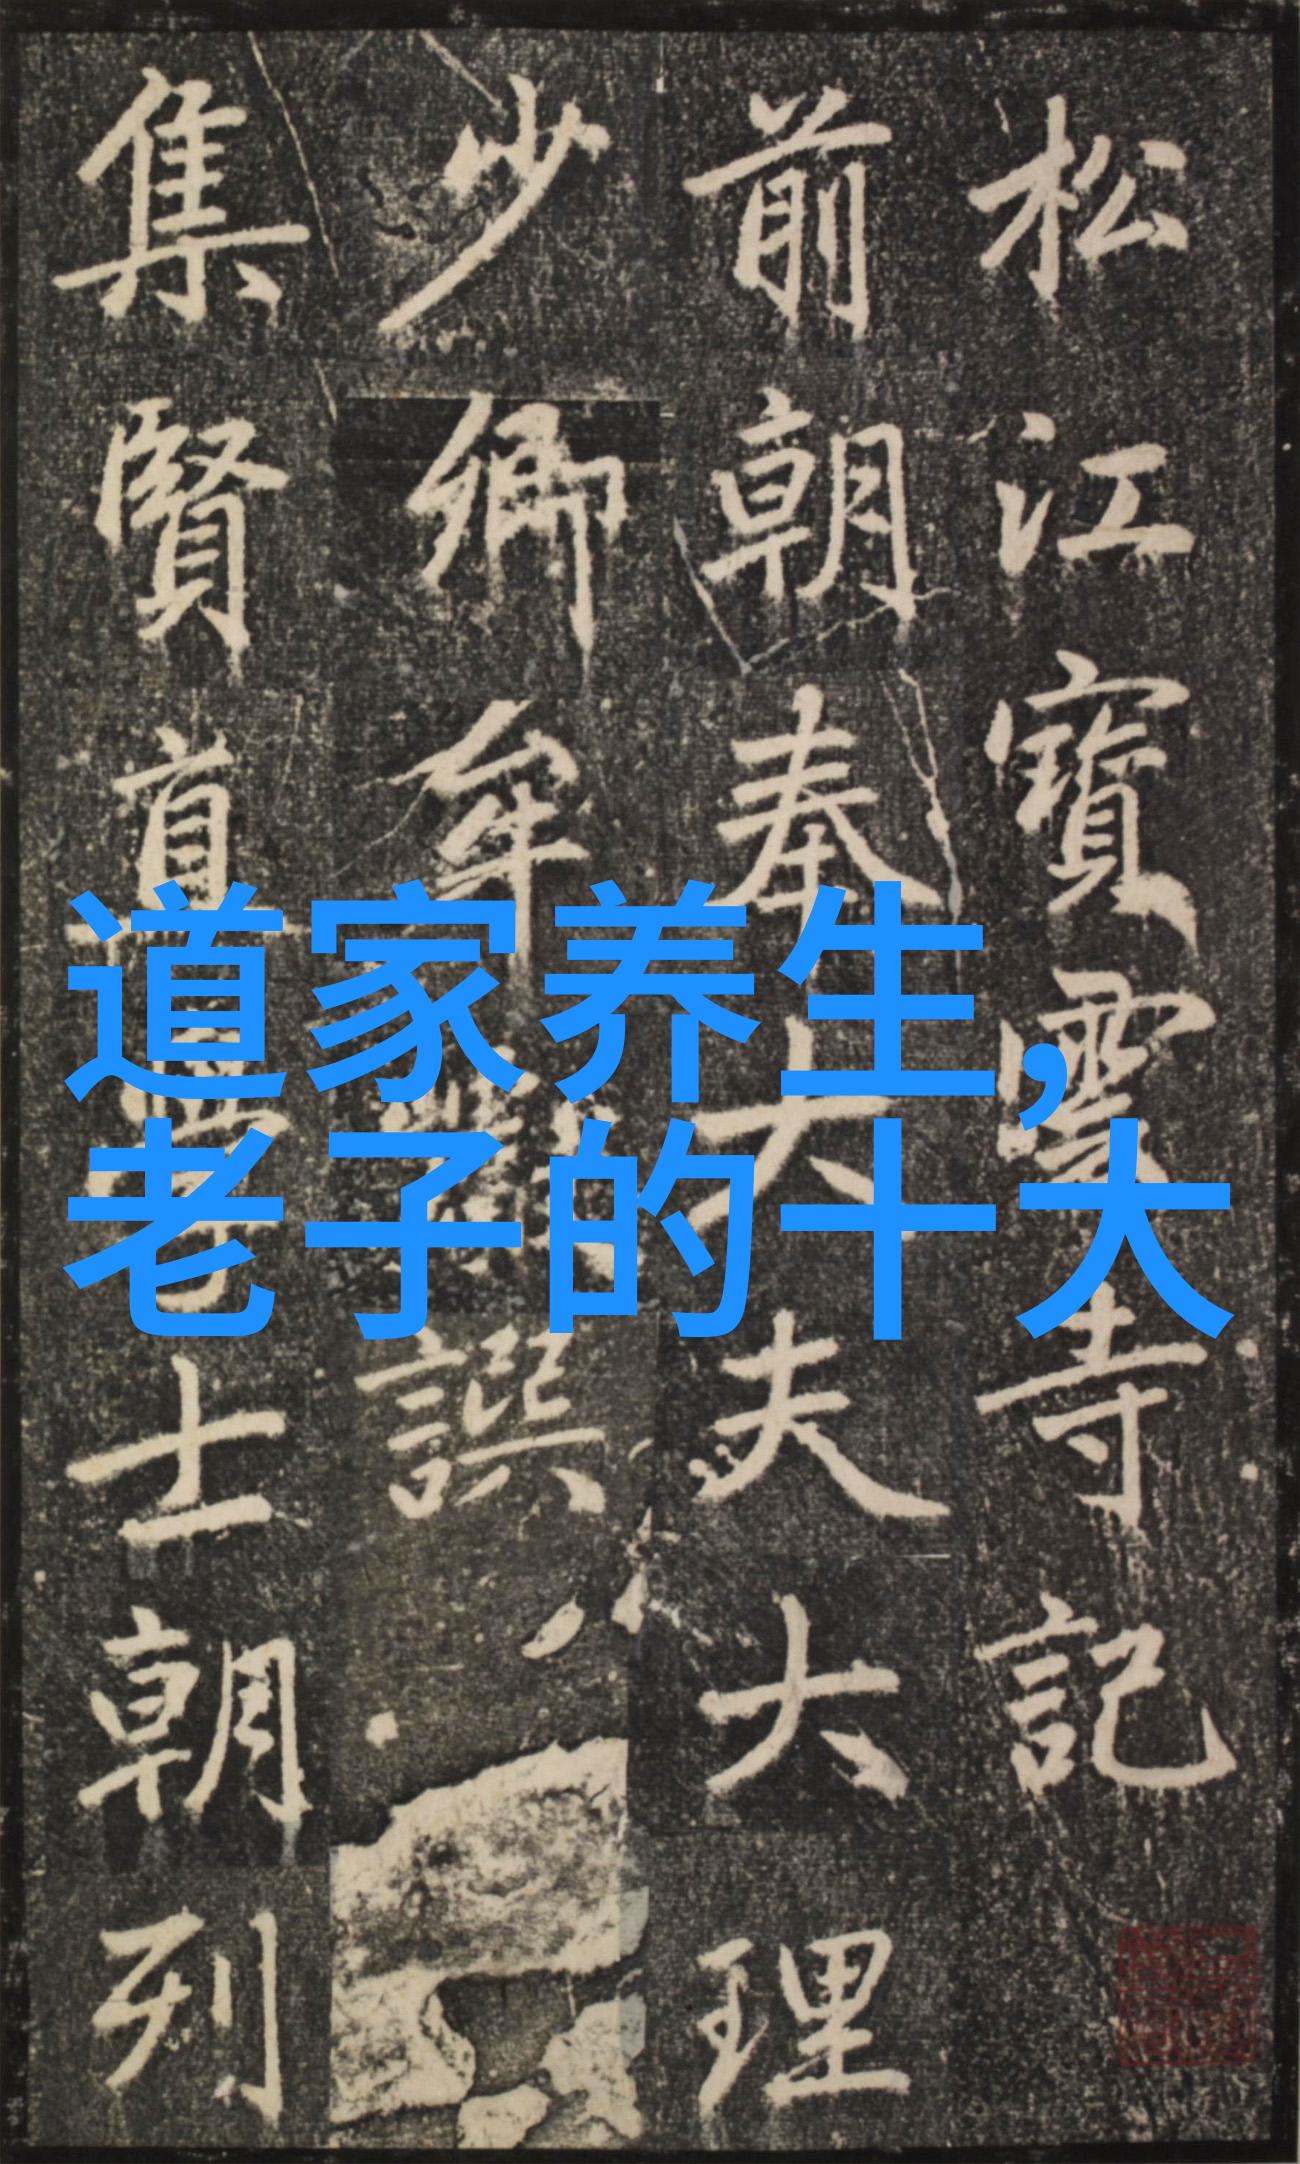 松江寶雲寺記
前朝奉大夫大理
少卿牟譔
集賢直學士朝列
道家养生,
老子的十大